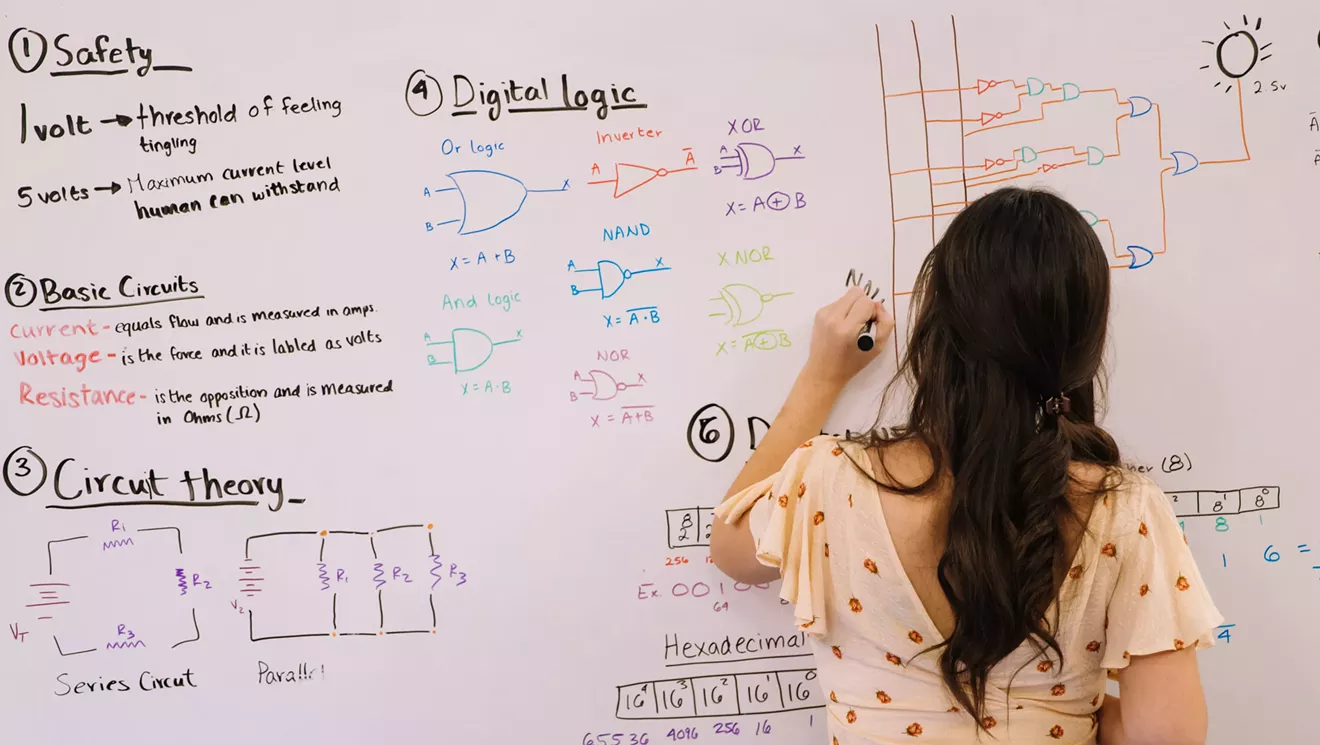 ① Safety
1 volt → threshold of feeling
tingling
5 volts → Maximum current level
human can withstand
② Basic Circuits
Current - equals flow and is measured in amps.
Voltage - is the force and it is labled as volts
Resistance - is the opposition and is measured
in Ohms (Ω)
③ Circuit theory
R1
R2
R3
VT
Series Circut
V2
R1
R2
R3
Parallel
④ Digital logic
Or logic
A
B
X
X = A + B
And Logic
A
B
X
X = A · B
Inverter
A
A̅
NAND
A
B
X
X = A̅ ·̅ B̅
NOR
A
B
X
X = A̅ +̅ B̅
XOR
A
B
X
X = A ⊕ B
X NOR
X = A̅ ⊕̅ B̅
2.5v
(8)
8¹
8⁰
8
1
1 6 =
4
256
Ex. 0010
64
Hexadecimal
16⁴ 16³ 16² 16¹ 16⁰
65536 4096 256 16 1